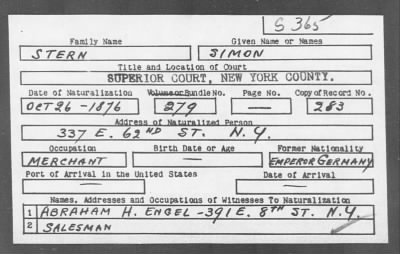 S 365
Family Name Given Name or Names
STERN SIMON
Title and Location of Court
SUPERIOR COURT, NEW YORK COUNTY.
Date of Naturalization Volume or Bundle No. Page No. Copy of Record No.
OCT 26 - 1876 279 — 283
Address of Naturalized Person
337 E. 62ND ST. N.Y.
Occupation Birth Date or Age Former Nationality
MERCHANT — EMPEROR GERMANY
Port of Arrival in the United States Date of Arrival
— —
Names, Addresses and Occupations of Witnesses To Naturalization
1 ABRAHAM H. ENGEL - 391 E. 8TH ST. N.Y.
2 SALESMAN